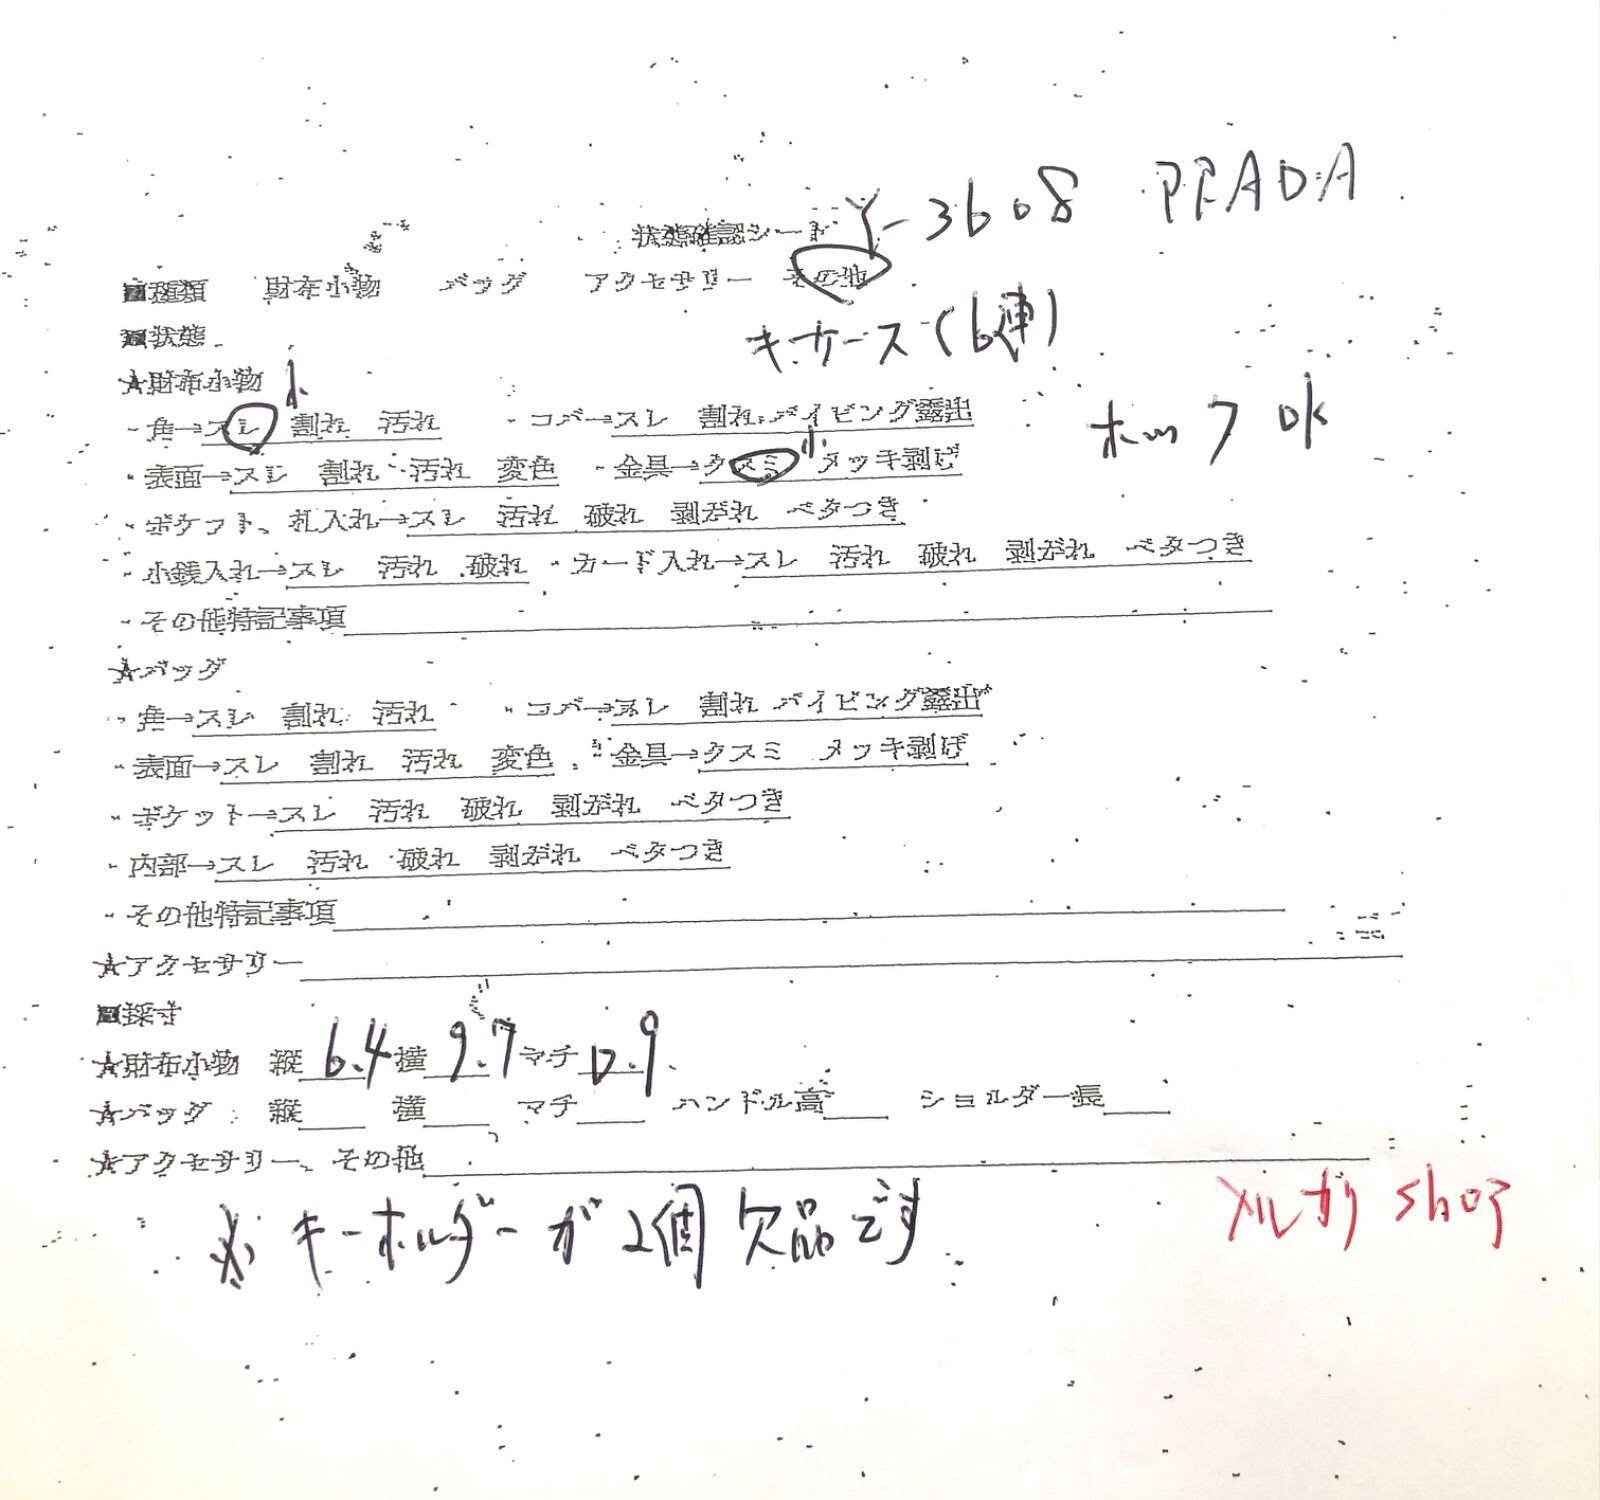 Y-3608 PRADA
状態確認シート
■種類 財布小物 バッグ アクセサリー その他
■状態
キーケース(6連)
★財布小物 小
・角→スレ 割れ 汚れ ・コバ→スレ 割れ パイピング露出
ホック OK
・表面→スレ 割れ 汚れ 変色 ・金具→クスミ 小 メッキ剥げ
・ポケット、札入れ→スレ 汚れ 破れ 剥がれ ベタつき
・小銭入れ→スレ 汚れ 破れ ・カード入れ→スレ 汚れ 破れ 剥がれ ベタつき
・その他特記事項
★バッグ
・角→スレ 割れ 汚れ ・コバ→スレ 割れ パイピング露出
・表面→スレ 割れ 汚れ 変色 ・金具→クスミ メッキ剥げ
・ポケット→スレ 汚れ 破れ 剥がれ ベタつき
・内部→スレ 汚れ 破れ 剥がれ ベタつき
・その他特記事項
★アクセサリー
■採寸
★財布小物 縦 6.4 横 9.7 マチ 0.9
★バッグ 縦 横 マチ ハンドル高 ショルダー長
★アクセサリー、その他
※ キーホルダーが2個 欠品です
メルカリ shop